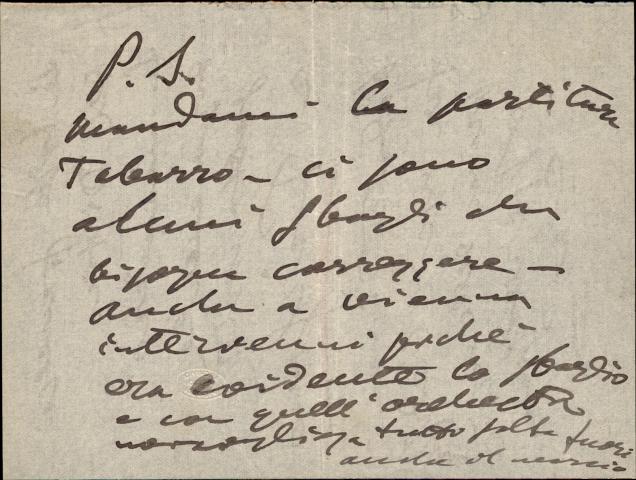 P.S.
mandami la partitura
Tabarro – ci sono
alcuni sbagli che
bisogna correggere –
anche a vienna
intervenni poiché
era evidente lo sbaglio
e con quell'orchestra
meravigliosa tutto salta fuori
anche il marcio